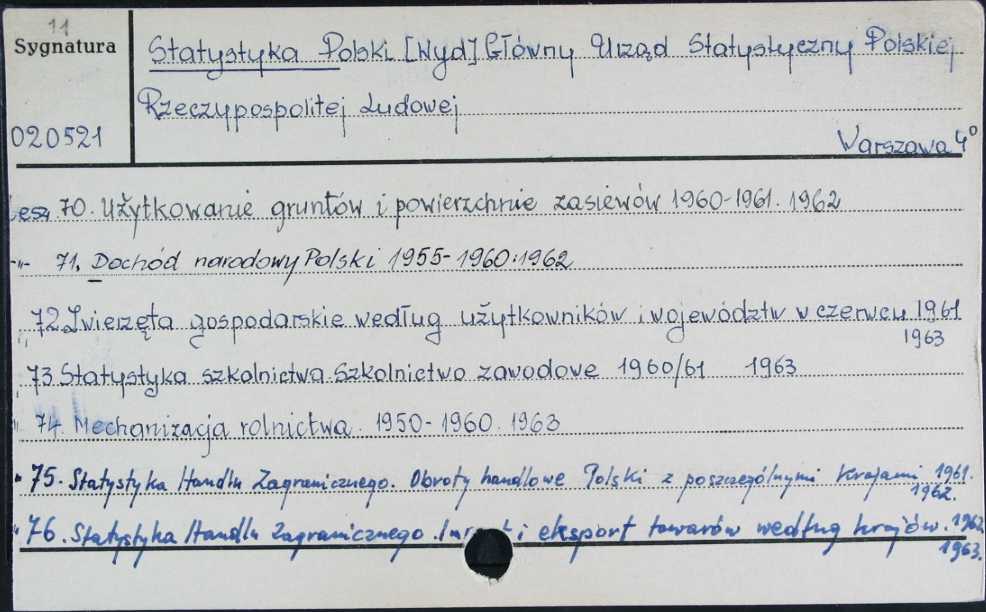 11
Sygnatura
Statystyka Polski [Wyd] Główny Urząd Statystyczny Polskiej
Rzeczypospolitej Ludowej
020521
Warszawa 4°
zesz. 70. Użytkowanie gruntów i powierzchnie zasiewów 1960-1961. 1962
-"- 71. Dochód narodowy Polski 1955-1960. 1962
" 72 Zwierzęta gospodarskie według użytkowników i województw w czerwcu 1961
1963
" 73 Statystyka szkolnictwa. Szkolnictwo zawodowe 1960/61 1963
" 74. Mechanizacja rolnictwa. 1950-1960. 1963
" 75. Statystyka Handlu Zagranicznego. Obroty handlowe Polski z poszczególnymi krajami 1961.
1962.
" 76. Statystyka Handlu Zagranicznego. i eksport towarów według krajów. 1962
1963.